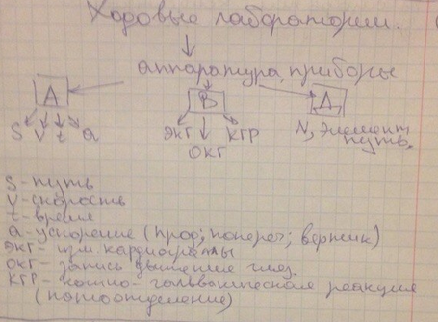 Ходовые лаборатории.
аппаратура, приборы
А В Д
S V t a ЭКГ ОКГ КГР N, элемент путь.
S - путь
V - скорость
t - время
a - ускорение (прод; попереч; вертик)
ЭКГ - изм. кардиограммы
ОКГ - запись движение глаз.
КГР - кожно-гальваническая реакция
(потоотделение)